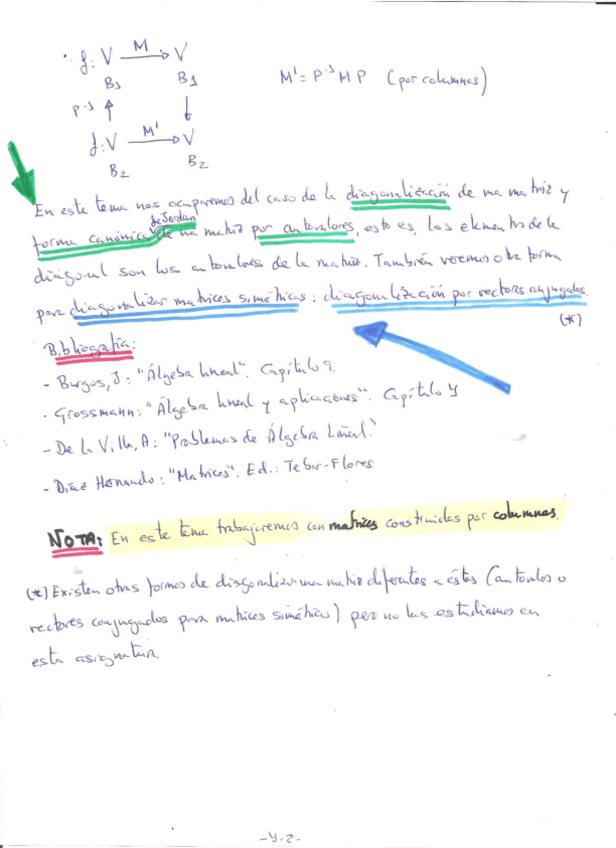 f: V M→ V
B1 B1
P⁻¹ ↑ ↓
f: V M'→ V
B2 B2
M' = P⁻¹ M P (por columnas)
En este tema nos ocuparemos del caso de la diagonalización de una matriz y
forma canónica de Jordan de una matriz por autovalores, esto es, los elementos de la
diagonal son los autovalores de la matriz. También veremos otra forma
para diagonalizar matrices simétricas: diagonalización por vectores conjugados.
(*)
Bibliografía:
- Burgos, J: "Álgebra lineal". Capítulo 9
- Grossmann: "Álgebra lineal y aplicaciones". Capítulo 4
- De la Villa, A: "Problemas de Álgebra Lineal."
- Díaz Hernando: "Matrices". Ed.: Tebar-Flores
NOTA: En este tema trabajaremos con matrices construidas por columnas.
(*) Existen otras formas de diagonalizar una matriz diferentes a éstas (autovalores o
vectores conjugados para matrices simétricas) pero no las estudiamos en
esta asignatura.
-4.2-